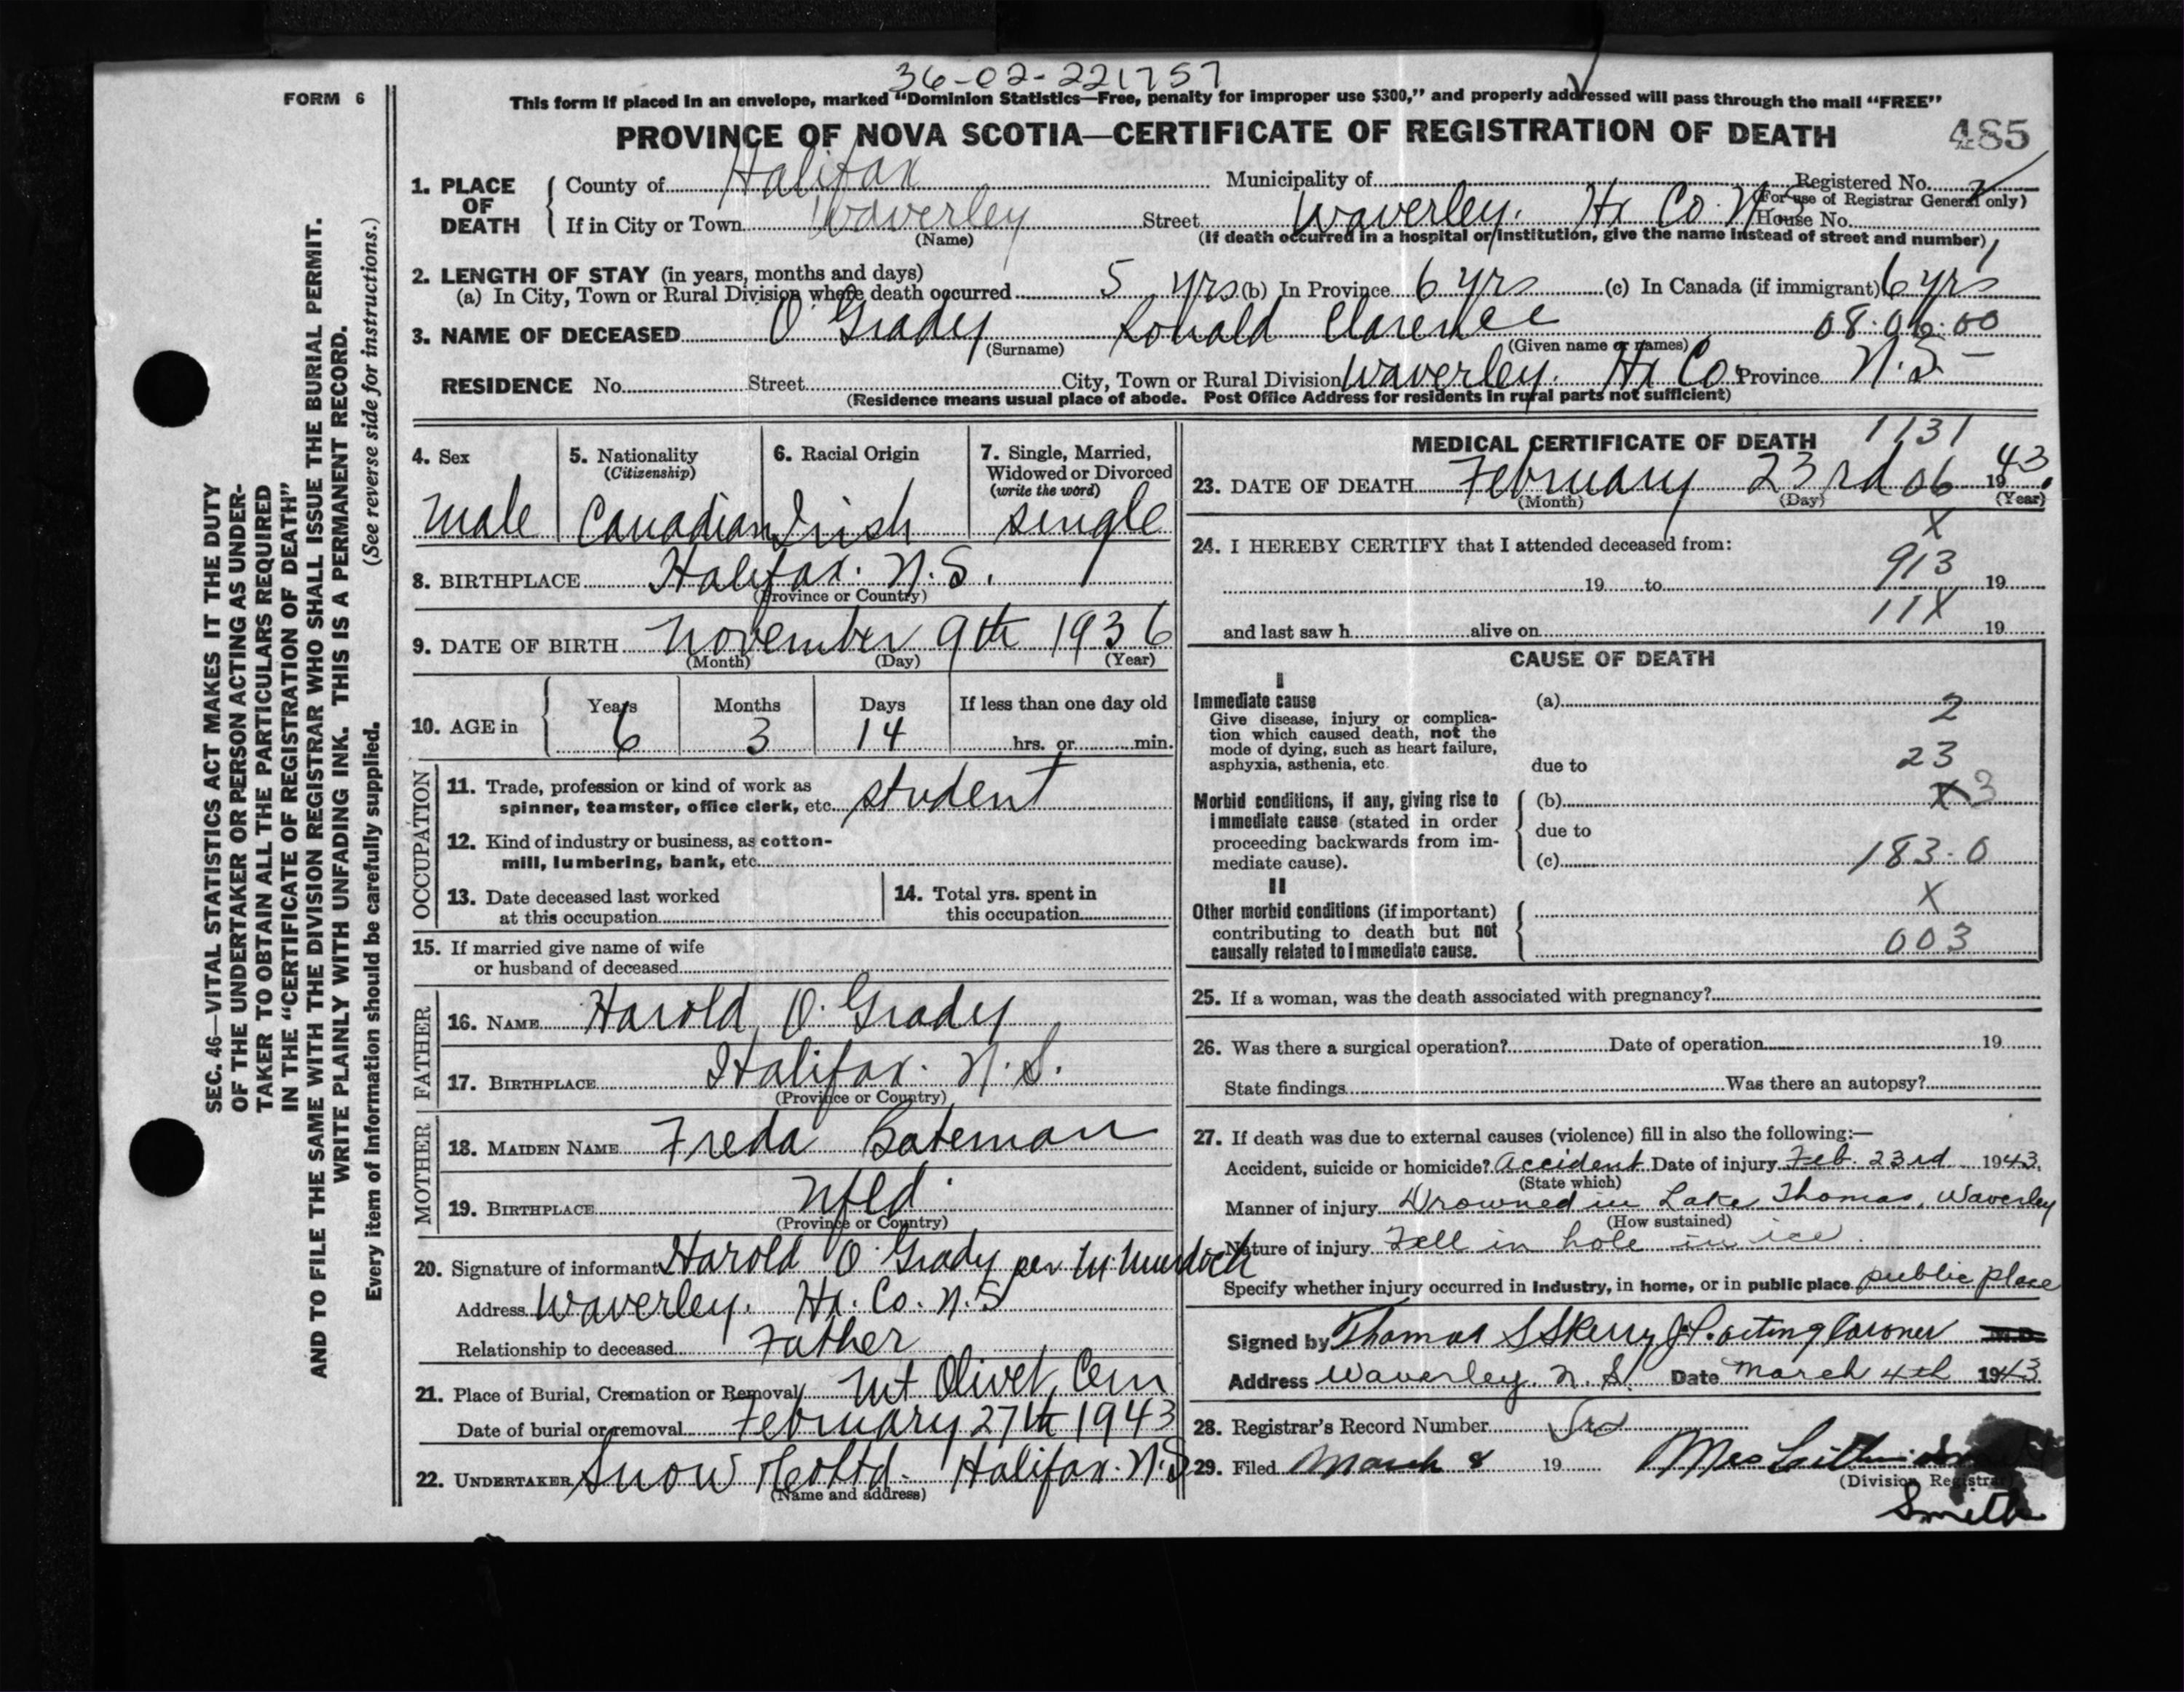 36-02-221757
FORM 6
This form if placed in an envelope, marked "Dominion Statistics—Free, penalty for improper use $300," and properly addressed will pass through the mail "FREE"
PROVINCE OF NOVA SCOTIA—CERTIFICATE OF REGISTRATION OF DEATH 485
1. PLACE OF DEATH County of Halifax Municipality of Registered No.
(For use of Registrar General only)
If in City or Town Waverley Street Waverley. Hx Co. N.S House No.
(Name) (If death occurred in a hospital or institution, give the name instead of street and number)
2. LENGTH OF STAY (in years, months and days)
(a) In City, Town or Rural Division where death occurred 5 yrs (b) In Province 6 yrs (c) In Canada (if immigrant) 6 yrs
3. NAME OF DECEASED O'Grady Ronald Clarence 08.06.00
(Surname) (Given name or names)
RESIDENCE No. Street City, Town or Rural Division Waverley. Hx Co. Province N.S-
(Residence means usual place of abode. Post Office Address for residents in rural parts not sufficient)
4. Sex 5. Nationality (Citizenship) 6. Racial Origin 7. Single, Married, Widowed or Divorced (write the word)
Male Canadian Irish single
8. BIRTHPLACE Halifax. N.S.
(Province or Country)
9. DATE OF BIRTH November 9th 1936
(Month) (Day) (Year)
10. AGE in Years Months Days If less than one day old
6 3 14 hrs. or min.
OCCUPATION
11. Trade, profession or kind of work as
spinner, teamster, office clerk, etc. student
12. Kind of industry or business, as cotton-
mill, lumbering, bank, etc.
13. Date deceased last worked
at this occupation
14. Total yrs. spent in
this occupation
15. If married give name of wife
or husband of deceased
FATHER
16. NAME Harold O'Grady
17. BIRTHPLACE Halifax. N.S.
(Province or Country)
MOTHER
18. MAIDEN NAME Freda Bateman
19. BIRTHPLACE Nfld.
(Province or Country)
20. Signature of informant Harold O'Grady per M Murdoch
Address Waverley. Hx. Co. N.S
Relationship to deceased Father
21. Place of Burial, Cremation or Removal Mt Olivet Cem
Date of burial or removal February 27th 1943
22. UNDERTAKER Snow & Co Ltd. Halifax. N.S
(Name and address)
MEDICAL CERTIFICATE OF DEATH 1131
23. DATE OF DEATH February 23rd 06 1943.
(Month) (Day) (Year)
X
24. I HEREBY CERTIFY that I attended deceased from:
913
19 to 19
11X
and last saw h alive on 19
CAUSE OF DEATH
I
Immediate cause (a)
Give disease, injury or complica- 2
tion which caused death, not the
mode of dying, such as heart failure,
asphyxia, asthenia, etc. due to 23
Morbid conditions, if any, giving rise to (b) X3
immediate cause (stated in order due to
proceeding backwards from im-
mediate cause). (c) 183.0
II
X
Other morbid conditions (if important)
contributing to death but not 003
causally related to immediate cause.
25. If a woman, was the death associated with pregnancy?
26. Was there a surgical operation? Date of operation 19
State findings Was there an autopsy?
27. If death was due to external causes (violence) fill in also the following:—
Accident, suicide or homicide? Accident Date of injury Feb. 23rd 1943.
(State which)
Manner of injury Drowned in Lake Thomas, Waverley
(How sustained)
Nature of injury Fell in hole in ice.
Specify whether injury occurred in industry, in home, or in public place public place
Signed by Thomas S Skerry J.P. acting Coroner M.D.
Address Waverley. N.S. Date March 4th 1943
28. Registrar's Record Number
29. Filed March 8 19 Mrs
(Division Registrar)
Smith
SEC. 46—VITAL STATISTICS ACT MAKES IT THE DUTY
OF THE UNDERTAKER OR PERSON ACTING AS UNDER-
TAKER TO OBTAIN ALL THE PARTICULARS REQUIRED
IN THE "CERTIFICATE OF REGISTRATION OF DEATH"
AND TO FILE THE SAME WITH THE DIVISION REGISTRAR WHO SHALL ISSUE THE BURIAL PERMIT.
WRITE PLAINLY WITH UNFADING INK. THIS IS A PERMANENT RECORD.
Every item of information should be carefully supplied. (See reverse side for instructions.)